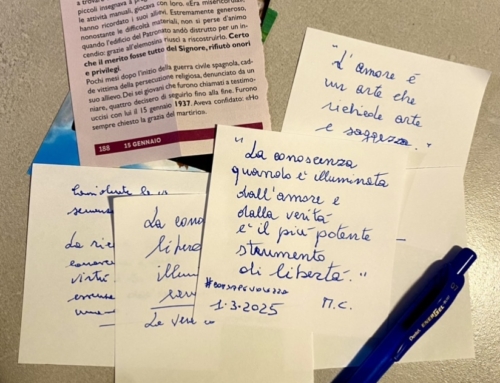 piccoli insegnava a
le attività manuali, giocava con loro. «Era misericor-
hanno ricordato i suoi allievi. Estremamente generoso,
nonostante le difficoltà materiali, non si perse d'animo
quando l'edificio del Patronato andò distrutto per un in-
cendio: grazie all'elemosina riuscì a ricostruirlo. Certo
che il merito fosse tutto del Signore, rifiutò onori
e privilegi.
Pochi mesi dopo l'inizio della guerra civile spagnola, cad-
de vittima della persecuzione religiosa, denunciato da un
suo allievo. Dei sei giovani che furono chiamati a testimo-
niare, quattro decisero di seguirlo fino alla fine. Furono
uccisi con lui il 15 gennaio 1937. Aveva confidato: «Ho
sempre chiesto la grazia del martirio».
188 15 GENNAIO
"L'amore è
un arte che
richiede arte
e saggezza."
"La conoscenza
quando è illuminata
dall'amore e
dalla verità
è il più potente
strumento
di libertà."
#consapevolezza
1.3.2025 M.C.
La cono
libera
illum
La ric
virtù
Pentel ENERGEL